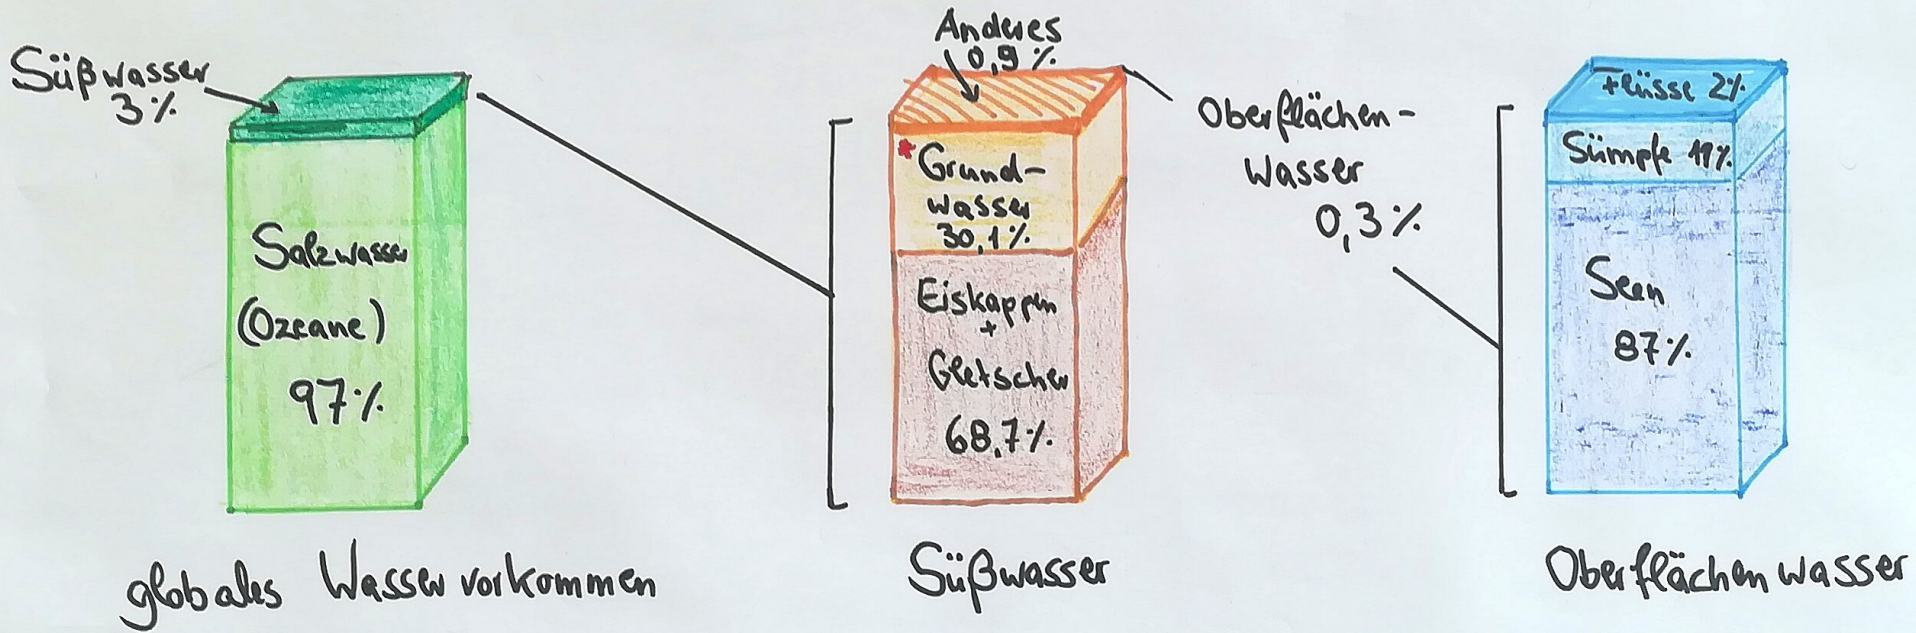 Süßwasser
3%
Salzwasser
(Ozeane)
97%
globales Wasservorkommen
Anderes
0,9%
* Grund-
wasser
30,1%
Eiskappen
+
Gletscher
68,7%
Süßwasser
Oberflächen-
wasser
0,3%
Flüsse 2%
Sümpfe 11%
Seen
87%
Oberflächenwasser